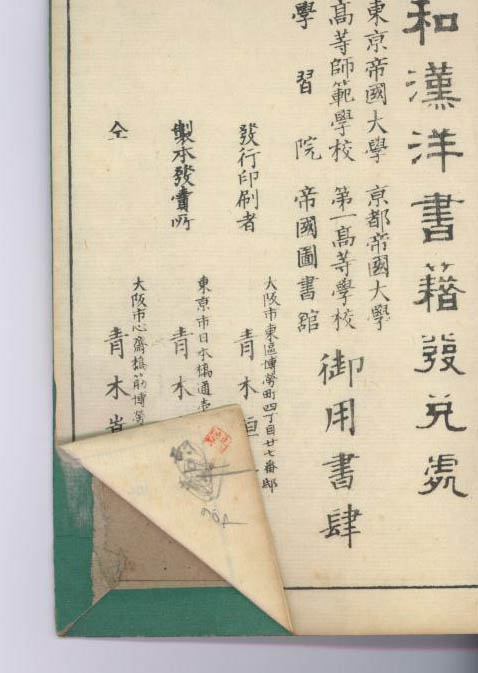 和漢洋書籍發兌處
東京帝國大學 京都帝國大學
高等師範學校 第一高等學校
學習院 帝國圖書館
御用書肆
大阪市東區博勞町四丁目廿七番邸
發行印刷者 青木
東京市日本橋通壹
製本發賣所 青木
大阪市心齋橋筋博勞
仝 青木嵩